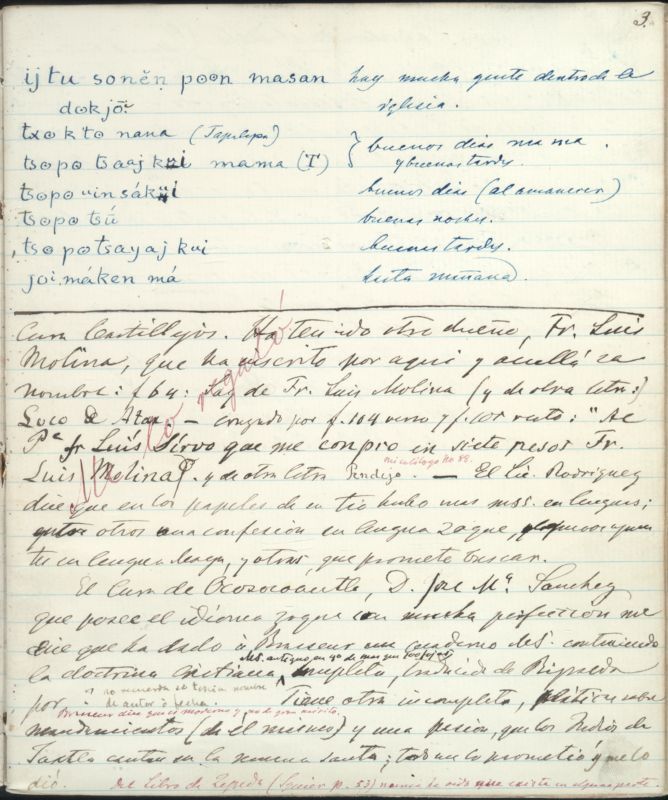 3.
ijtu sonĕn poon masan hay mucha gente dentro de la
dokjō iglesia.
txokto nana (Tapilapa) } buenos dias mama.
tsopo tsaaj kʉi mama (T) y buenas tardes.
tsopo insákʉi buenos dias (al amanecer)
tsopo tsú buenas noches.
tsopotsayaj kui buenas tardes.
joi máken má hasta mañana
Cura Castillejos. Ha tenido otro dueño, Fr. Luis
Molina, que ha inscrito por aqui y acullá su
nombre: f 64: Soy de Fr. Luis Molina (y de otra letra:)
Loco de Atar. — corregido por f. 104 verso y f. 105 recto: "
Pe fr Luis Sirvo que me conpro en siete pesos Fr.
mi catálogo No 89.
Luis Molina y de otra letra Pendejo. — El Lic. Rodriguez
dice que en los papeles de su tio hubo mas mss. en lenguas;
entre otros una confesion en lengua Zoque,
en lengua y otros, que prometo buscar.
El Cura de Ocosocoautla, D. Jose Ma. Sanchez
que posee el idioma zoque con mucha perfeccion me
dice que ha dado à Brasseur un cuaderno MS. conteniendo
MS. antiguo en 4o de mas que 100 fojas
la doctrina cristiana completa, traducida de Ripalda
por no recuerda si tenia nombre
de autor ò fecha. Tiene otra incompleta, platica sobre
Brasseur dice que es moderno y no de gran mérito.
mandamientos (de él mismo) y una pasion, que los Indios de
Tuxtla cantan en la semana santa; todo me lo prometió y me lo
dió. del libro de Zepeda (Squier p. 53) nunca ha oido que exista en alguna parte.
Me lo regaló